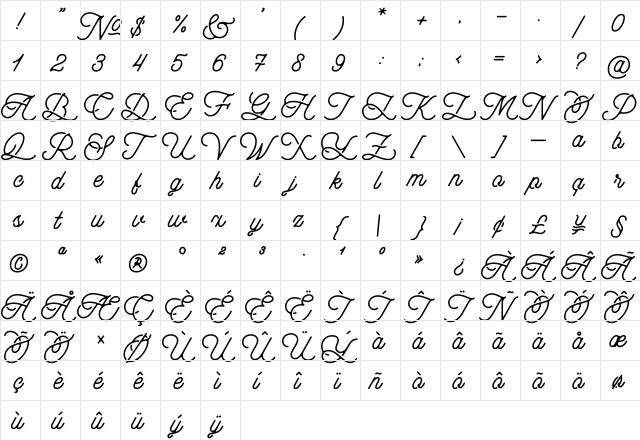 ! " № $ % & ' ( ) * + , − · / 0
1 2 3 4 5 6 7 8 9 : ; < = > ? @
A B C D E F G H I J K L M N O P
Q R S T U V W X Y Z [ \ ] — a b
c d e f g h i j k l m n o p q r
s t u v w x y z { | } ¡ ¢ £ ¥ §
© ª « ® ° ² ³ · ¹ º » ¿ À Á Â Ã
Ä Å Æ Ç È É Ê Ë Ì Í Î Ï Ñ Ò Ó Ô
Õ Ö × Ø Ù Ú Û Ü Ý à á â ã ä å æ
ç è é ê ë ì í î ï ñ ò ó ô õ ö ø
ù ú û ü ý ÿ